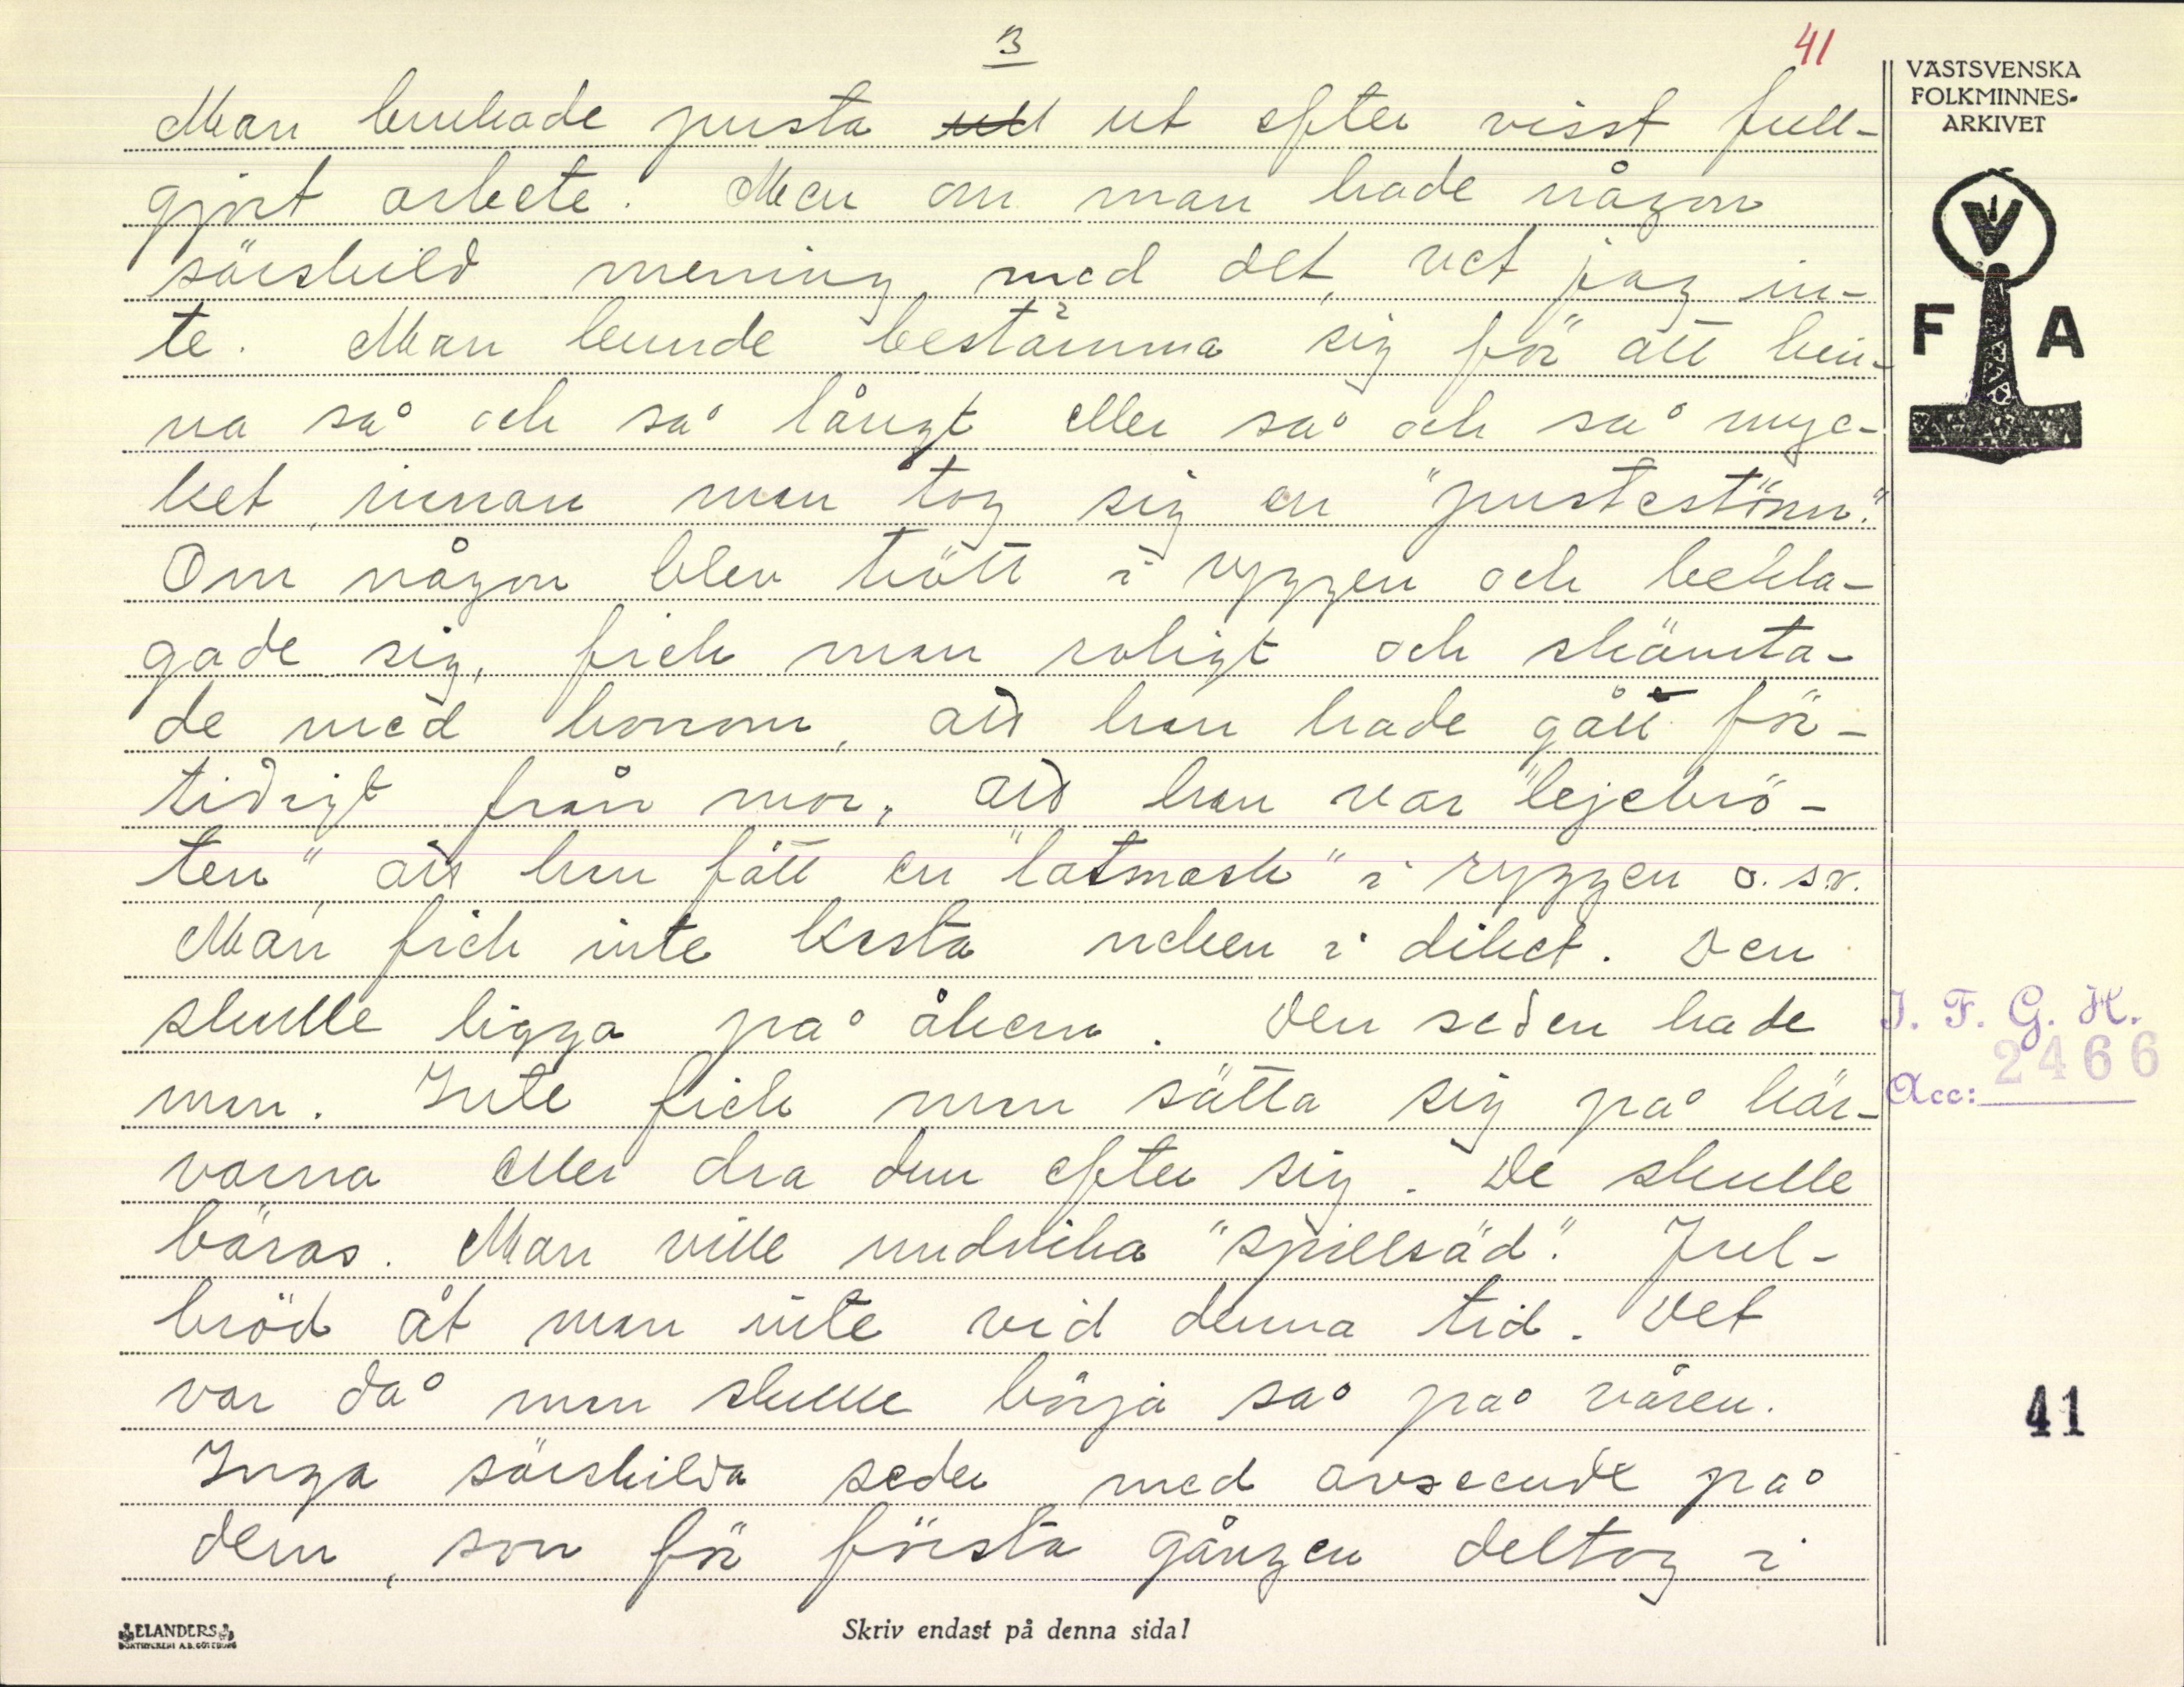 3
41
VÄSTSVENSKA
FOLKMINNES-
ARKIVET
V
F A
Man brukade pusta ut efter visst full-
gjort arbete. Men om man hade någon
särskild mening med det, vet jag in-
te. Man kunde bestämma sig för att hin-
na så och så långt eller så och så myc-
ket, innan man tog sig en "pustestönn".
Om någon blev trött i ryggen och bekla-
gade sig, fick man roligt och skämta-
de med honom, att han hade gått för-
tidigt från mor, att han var "lejebrö-
ten", att han fått en "latmask" i ryggen o.s.v.
Man fick inte kasta neken i diket. Den
skulle ligga på åkern. Den seden hade
man. Inte fick man sätta sig på kär-
varna eller dra dem efter sig. De skulle
bäras. Man ville undvika "spillsäd". Jul-
bröd åt man inte vid denna tid. Det
var då man skulle börja så på våren.
Inga särskilda seder med avseende på
dem, som för första gången deltog i
I. F. G. H.
2466
Acc:
41
ELANDERS
BOKTRYCKERI A.B. GÖTEBORG
Skriv endast på denna sida!